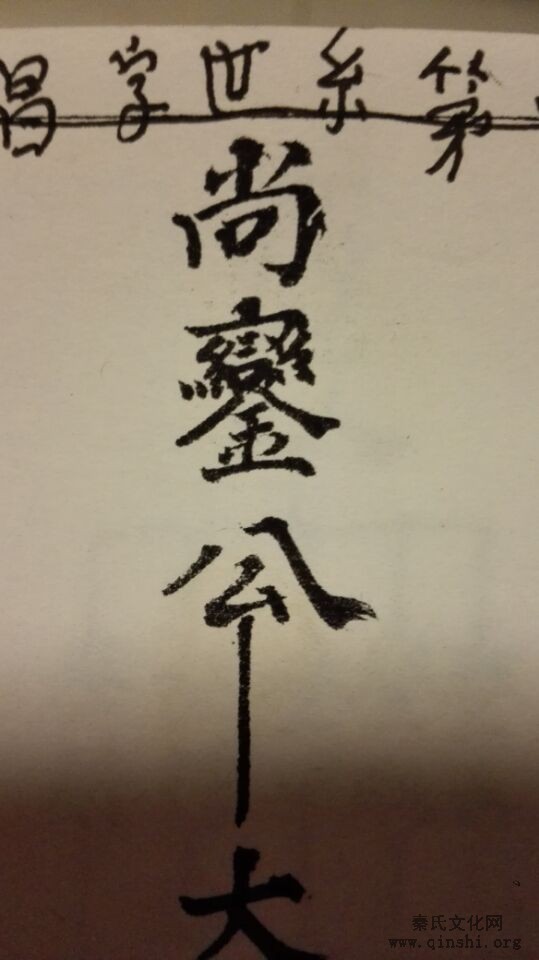 昌字世系第
尚鑾公
大
秦氏文化网
www.qinshi.org